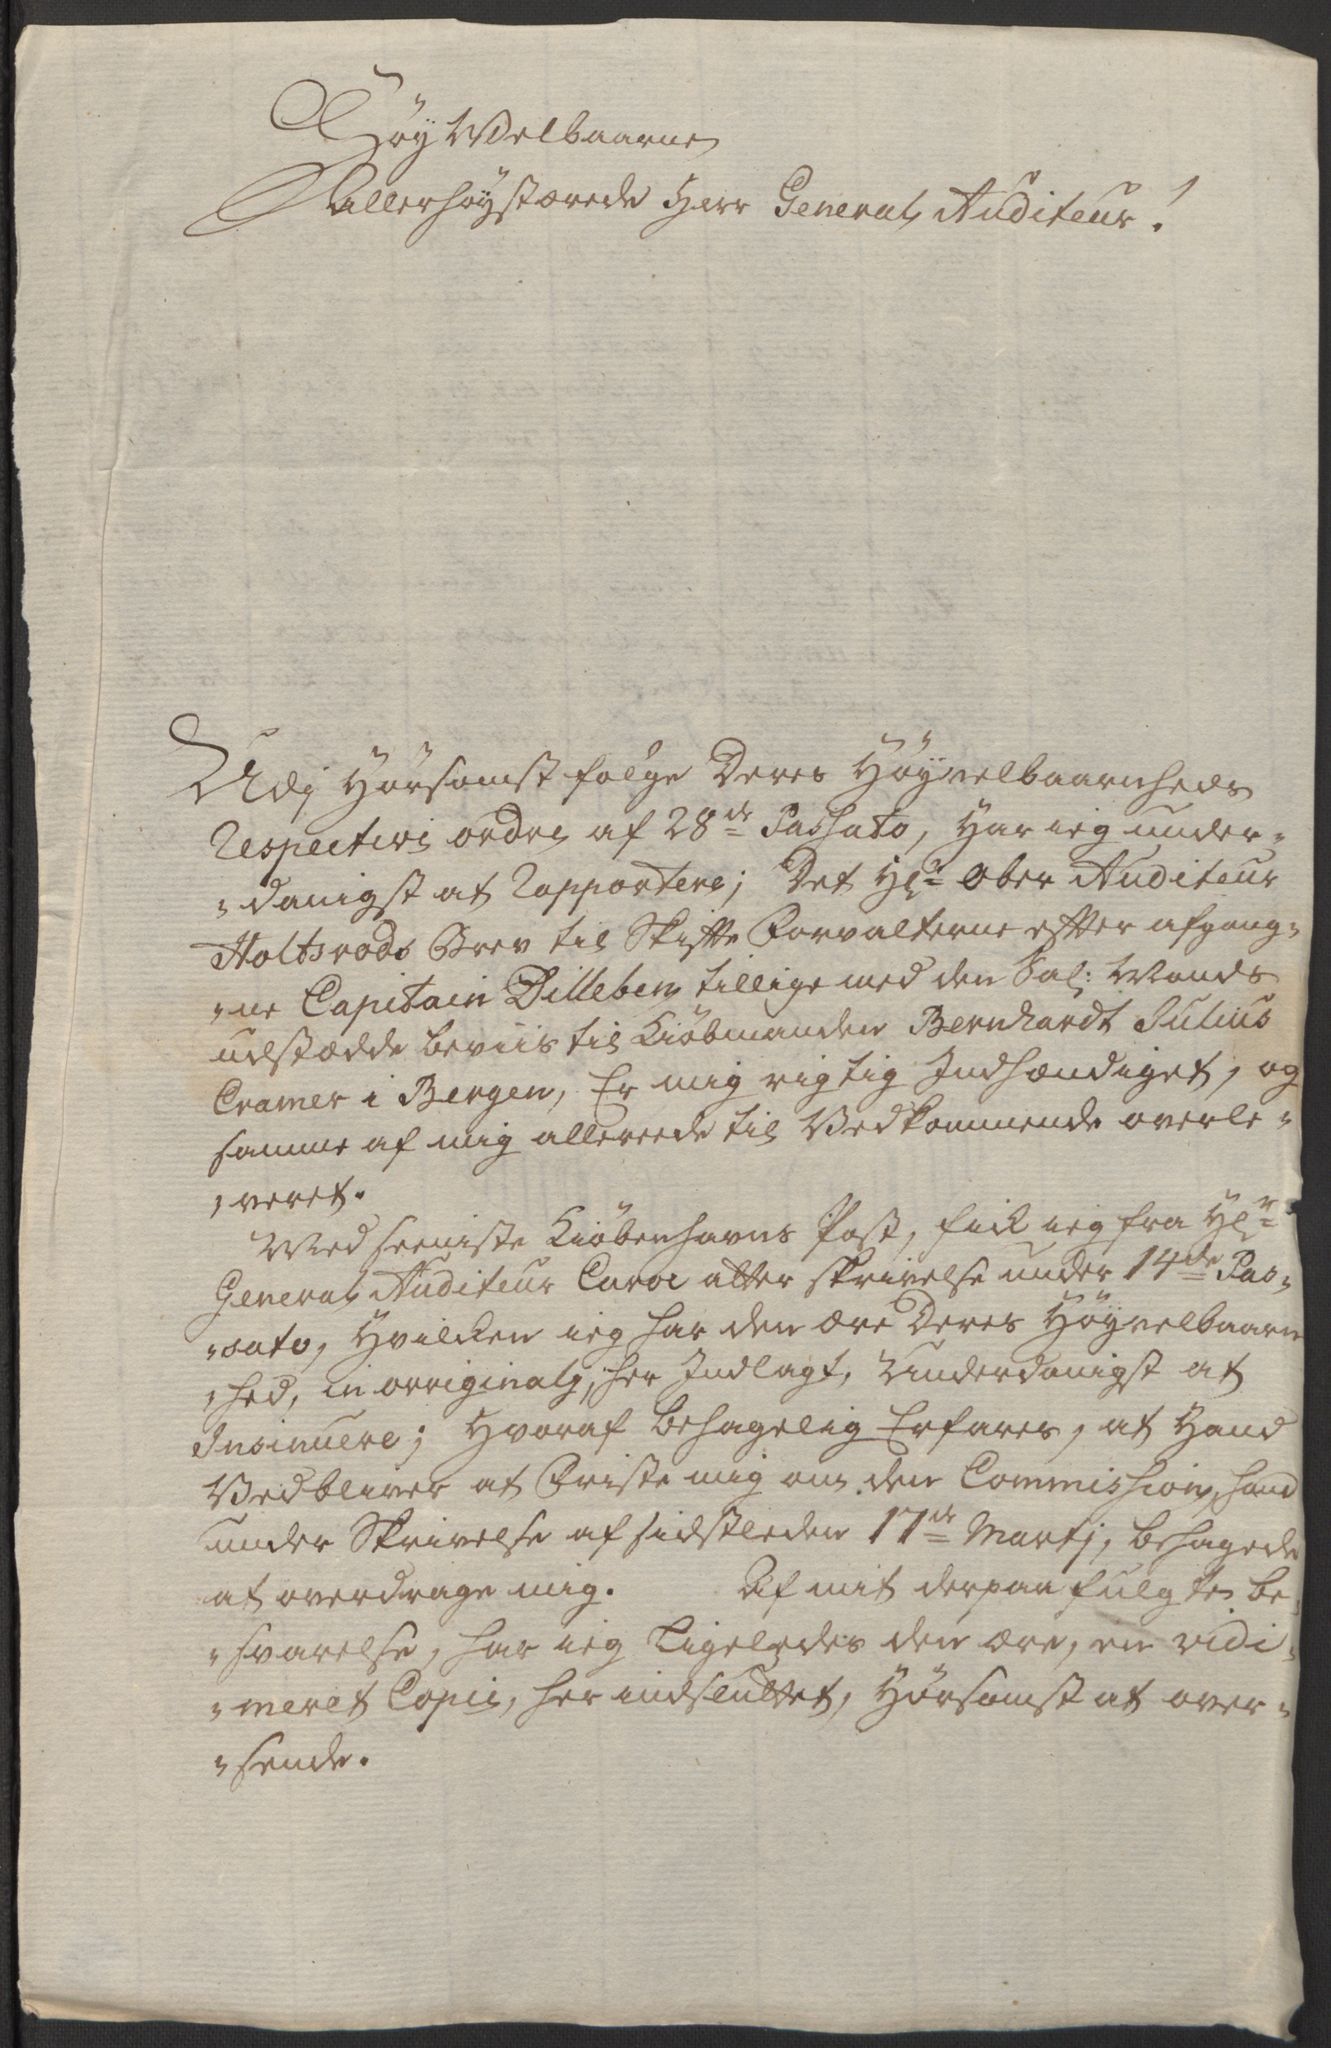 Høy Welbaarne
Allerhøystærede Herr General Auditeur!
Udj Hørsomst følge Deres Høyvelbaarnheds
Respective ordre af 28de Passato, Har ieg under-
-danigst at Rapportere; Det Hr Ober Auditeur
Holtsrods Brev til Skifte Forvalterne efter afgang-
-ne Capitain Dilleben tillige med den Sal: Mands
udstædde beviis til Kiöbmanden Bernhardt Julius
Cramer i Bergen, Er mig rigtig Indhændiget, og
samme af mig allereede til Vedkommende overle-
-veret.
Med seeniste Kiöbenhavns Post, fick ieg fra Hr
General Auditeur Caroc atter skrivelse under 14de Pas-
-sato, Hvilcken ieg har den ære Deres Høyvelbaarn
-hed, in orriginalj, her Indlagt, Underdanigst at
Insinuere; Hvoraf behagelig Erfares, at Hand
Vedbliver at Friste mig om den Commission, hand
under Skrivelse af sidstleden 17de Martj, behagede
at overdrage mig. Af mit derpaa fulgte be-
-svarelse, har ieg Ligeledes den ære, en vidi-
-meret Copie, her indsluttet, Hørsomst at over-
-sende.